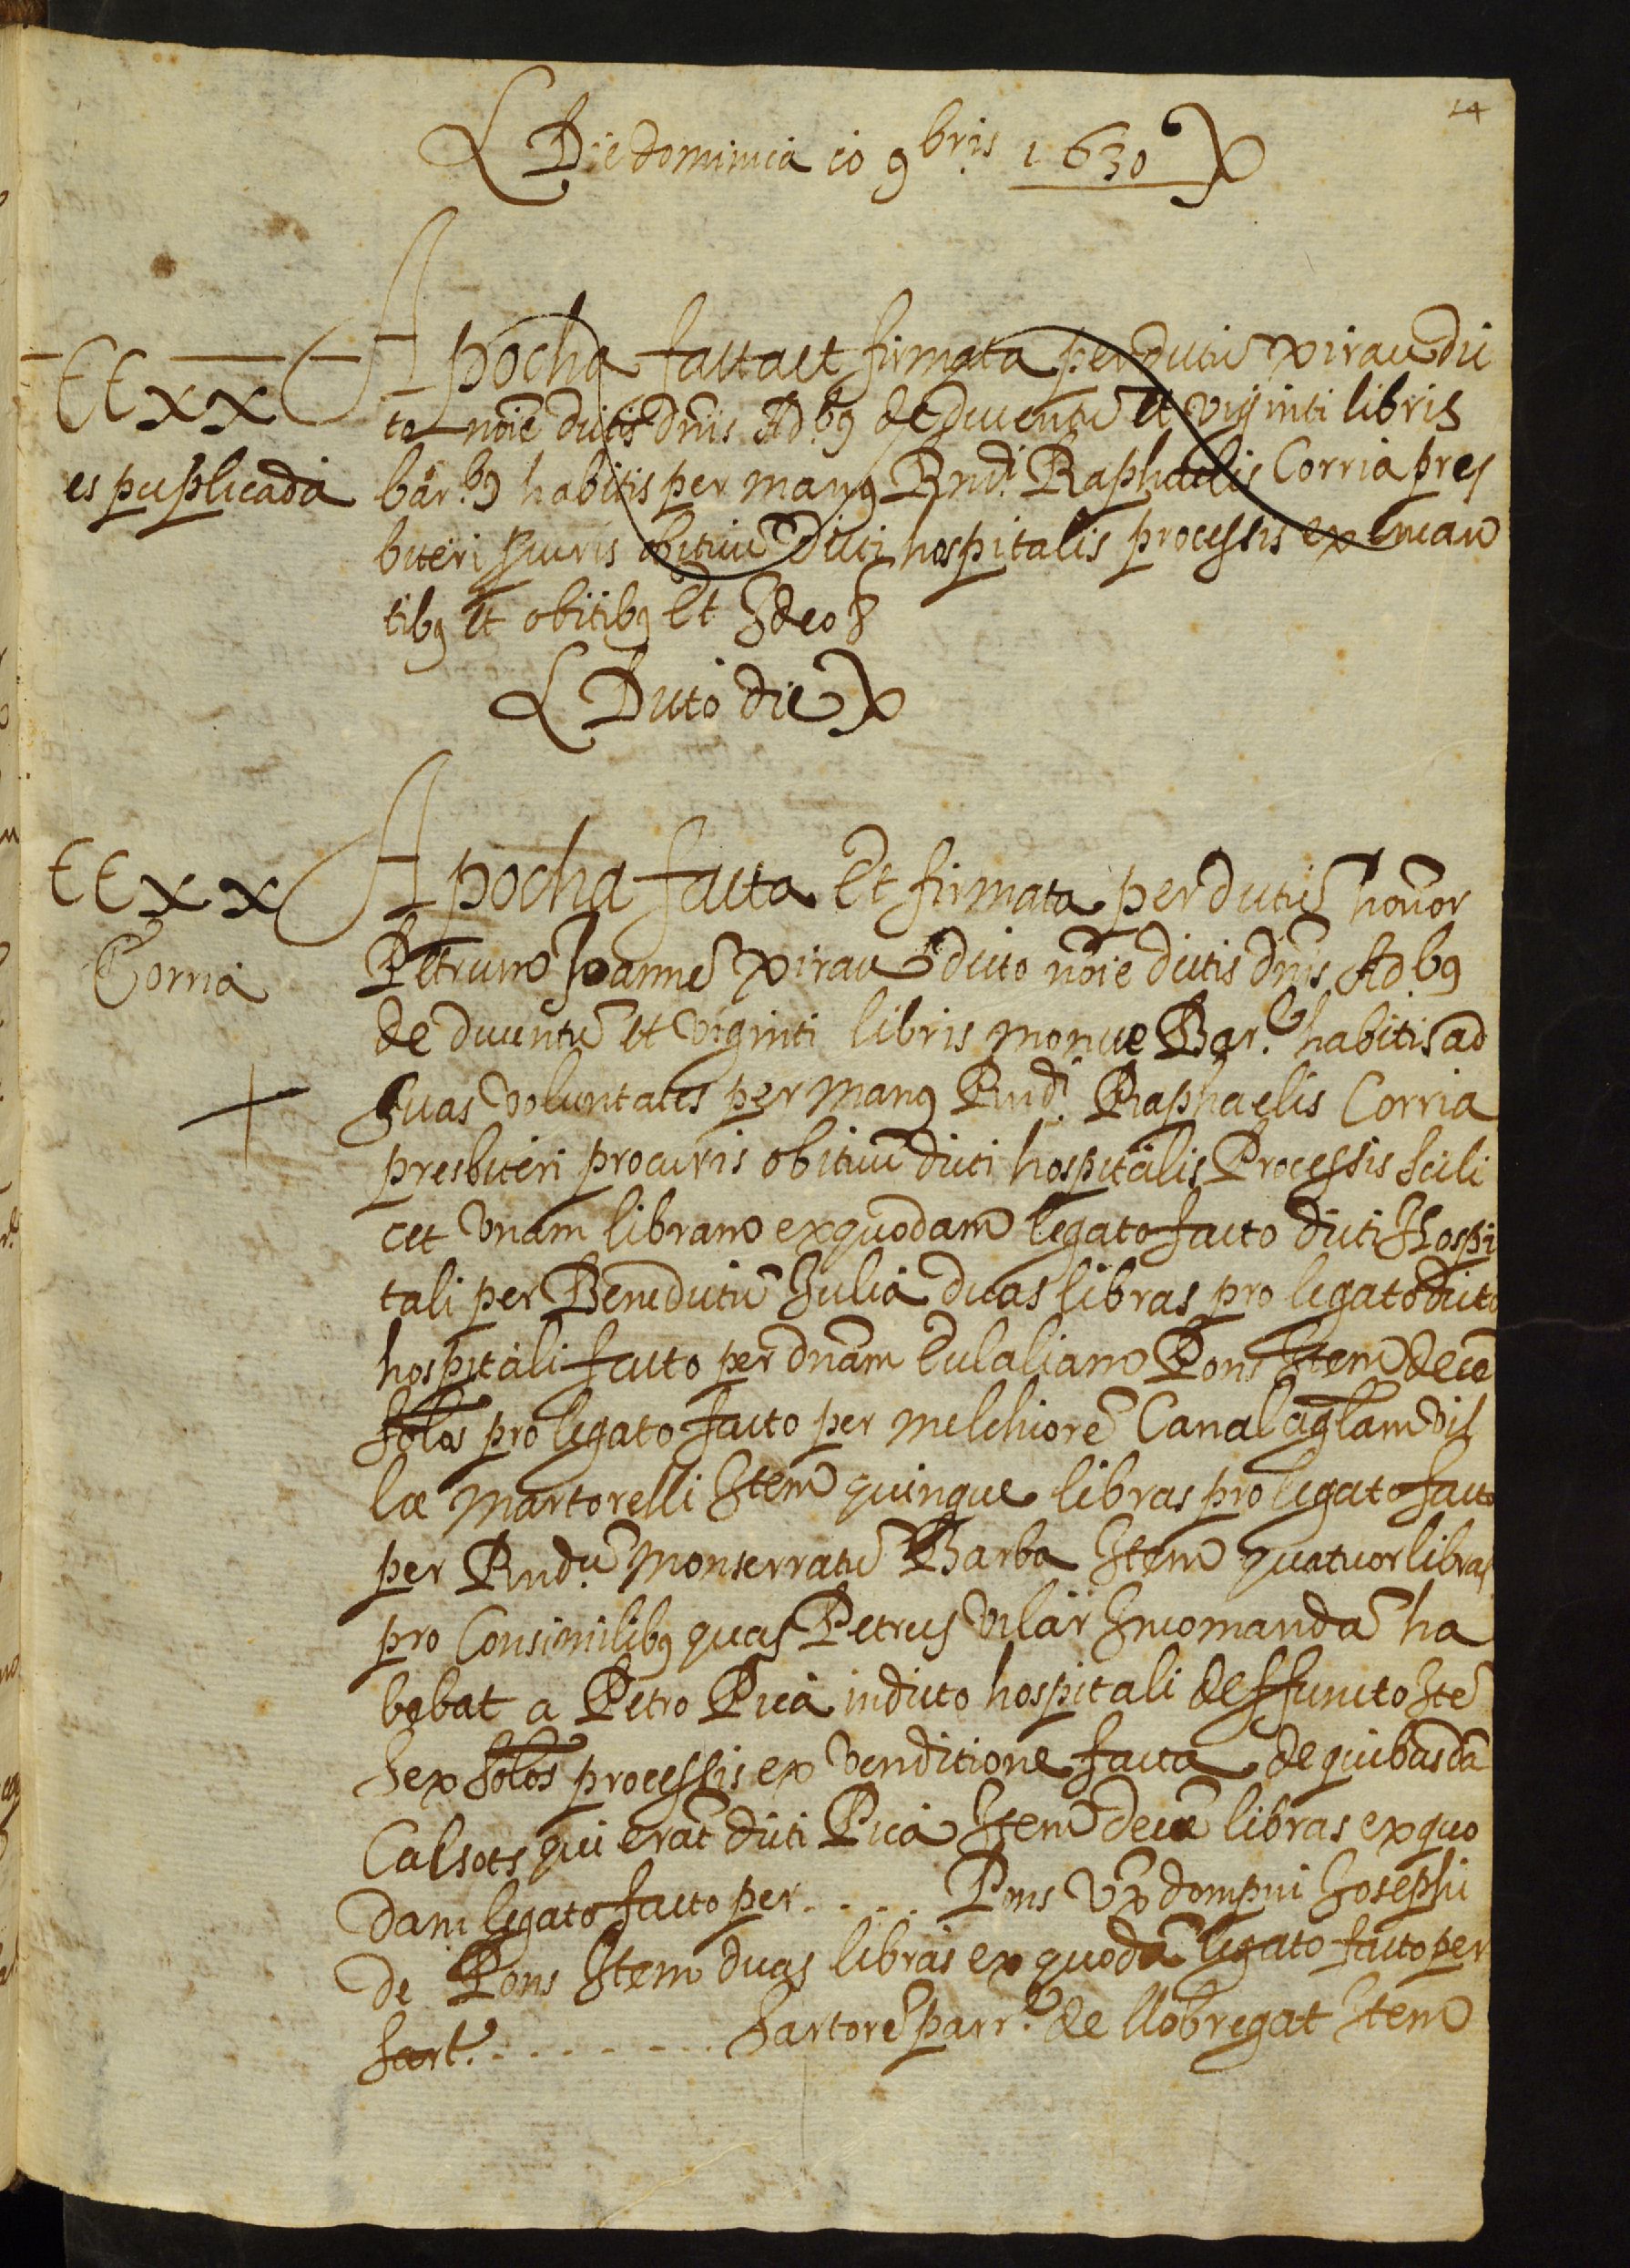 14
Die dominica 10 9bris 1630
Apocha facta et firmata per dictũ Xirau dic
CCxx
to noie dictis dnis Adb9 de ducentũ et viginti libris
es puplicada
barb9 habitis per manq Rndi Raphaelis Corria pres
biteri procuris obituũ dicti hospitalis processis ex encan
tibq et obitibq Et Ideo &
Dicto die
Apocha facta Et firmata per dictũ honor
CCxx
Petrum Joannẽ Xirau dicto noie dictis dnis Adb9
Corria
de ducentũ et viginti libris monete Bar. habitis ad
suas voluntates per manq Rndi Raphaelis Corria
presbiteri procuris obituũ dicti hospitalis Processis scili
cet vnam libram ex quodam legato facto dicti Hospi
tali per Benedictũ Julia duas libras pro legato dicto
hospitali facto per dnam Eulaliam Pons Item decẽ
solos pro legato facto per Melchiorẽ Canal aglam vil
læ Martorelli Item quinque libras pro legato facto
per Rndũ Monserratũ Barba Item quatuor libras
pro Consimilibq quas Petrus Vilar Incomandã ha
bebat a Petro Pica in dicto hospitali deffuncto Itẽ
sex solos processis ex venditione facta de quibusdã
Calsots qui erãt dicti Pica Item decẽ libras ex quo
dam legato facto per ..... Pons Vx dompni Josephi
de Pons Item duas libras ex quodã legato facto per
sart. ......... Sartorẽ parr. de llobregat Item